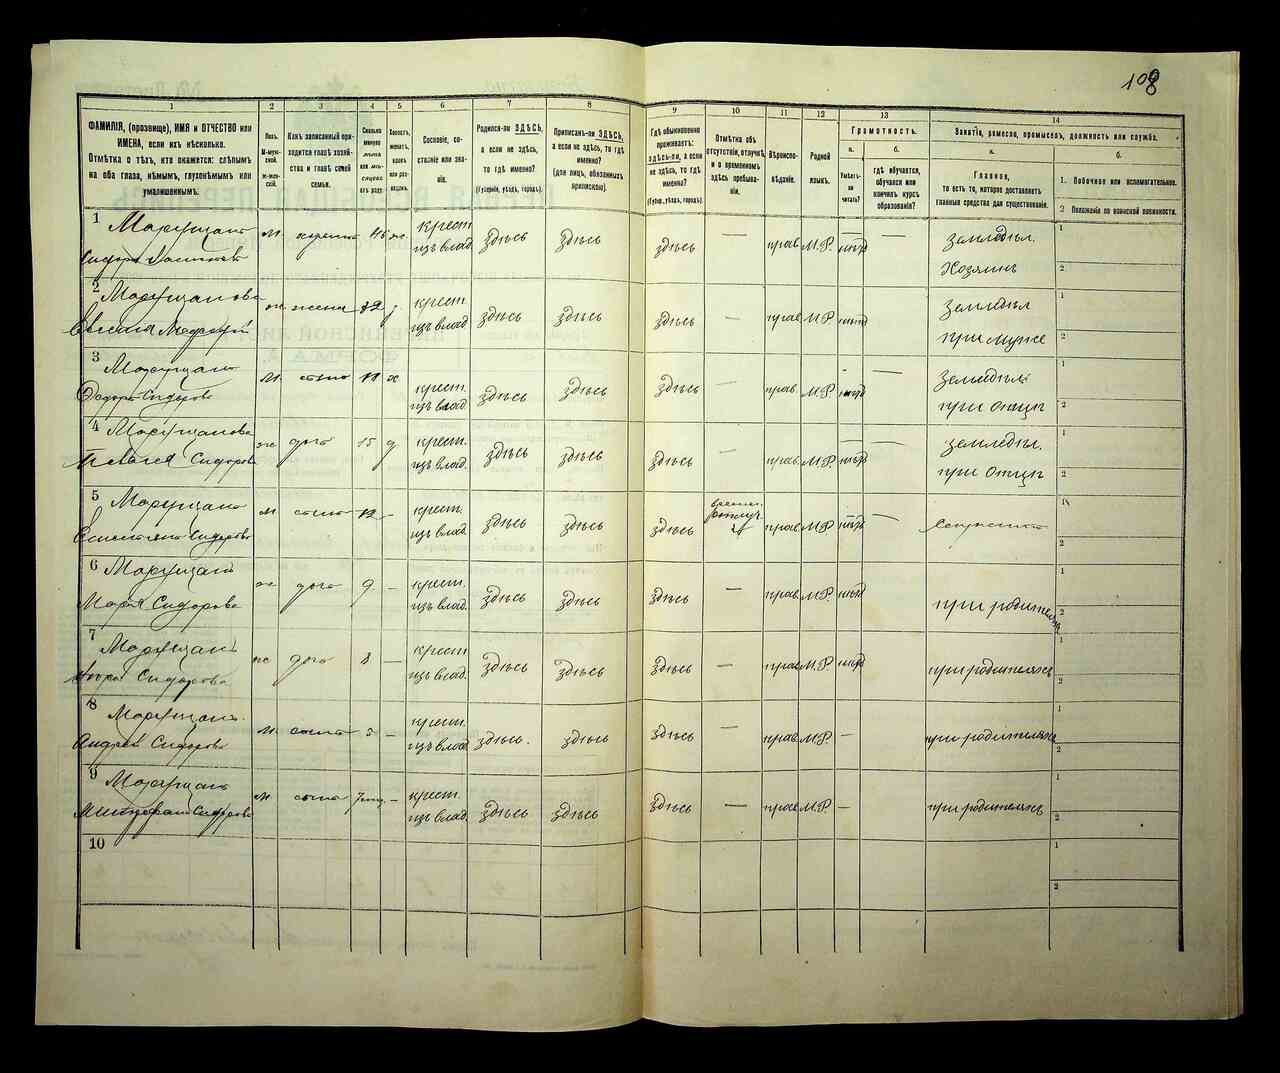 108
1
2
3
4
5
6
7
8
9
10
11
12
13
14
ФАМИЛІЯ, (прозвище), ИМЯ и ОТЧЕСТВО или
ИМЕНА, если ихъ нѣсколько.
Отмѣтка о тѣхъ, кто окажется: слѣпымъ
на оба глаза, нѣмымъ, глухонѣмымъ или
умалишеннымъ.
Полъ.
М-муж-
ской.
Ж-жен-
скій.
Какъ записанный при-
ходится главѣ хозяй-
ства и главѣ своей
семьи.
Сколько
минуло
лѣтъ
или мѣ-
сяцевъ
отъ роду.
Холостъ,
женатъ,
вдовъ
или раз-
веденъ.
Сословіе, со-
стояніе или зва-
ніе.
Родился-ли ЗДѢСЬ,
а если не здѣсь,
то гдѣ именно?
(Губернія, уѣздъ, городъ).
Приписанъ-ли ЗДѢСЬ,
а если не здѣсь, то гдѣ
именно?
(для лицъ, обязанныхъ
припискою).
Гдѣ обыкновенно
проживаетъ:
ЗДѢСЬ-ли, а если
не здѣсь, то гдѣ
именно?
(Губер., уѣздъ, городъ).
Отмѣтка объ
отсутствіи, отлучкѣ
и о временномъ
здѣсь пребыва-
ніи.
Вѣроиспо-
вѣданіе.
Родной
языкъ.
Грамотность.
а.
Умѣетъ-
ли
читать?
б.
гдѣ обучается,
обучался или
кончилъ курсъ
образованія?
Занятіе, ремесло, промыселъ, должность или служба.
а.
Главное,
то есть то, которое доставляетъ
главныя средства для существованія.
б.
1. Побочное или вспомогательное.
2 Положеніе по воинской повинности.
1 Марущакъ м 45 ж. крест. здѣсь здѣсь здѣсь — прав М.Р. — земледѣл. 1
изъ влад Хозяинъ 2
2 Марущакова ж жена крест. здѣсь здѣсь здѣсь — прав М.Р земледѣл 1
изъ влад при мужѣ 2
3 Марущакъ м. сынъ х крест. здѣсь здѣсь здѣсь — прав. М.Р — земледѣл 1
Сидоровъ изъ влад. при отцѣ 2
4 Марущакова ж доч 15 д крест. здѣсь здѣсь здѣсь — прав М.Р. — земледѣл. 1
Сидорова изъ влад. при отцѣ 2
5 Марущакъ м сынъ 12 — крест. здѣсь здѣсь здѣсь прав М.Р. — 1
Сидоровъ изъ влад. 2
6 Марущакъ ж доч 9 — крест. здѣсь здѣсь здѣсь — прав. М.Р. 1
Марія Сидорова изъ влад. при родителяхъ 2
7 Марущакъ ж доч 8 — крест здѣсь здѣсь здѣсь — прав М.Р. 1
Сидорова изъ влад. при родителяхъ 2
8 Марущакъ м. сынъ 5 — крест. здѣсь. здѣсь здѣсь — прав. М.Р. — 1
Андрей Сидоровъ изъ влад при родителяхъ 2
9 Марущакъ м сынъ — крест. здѣсь здѣсь здѣсь — прав М.Р. — 1
Сидоровъ изъ влад. при родителяхъ 2
10 1
2